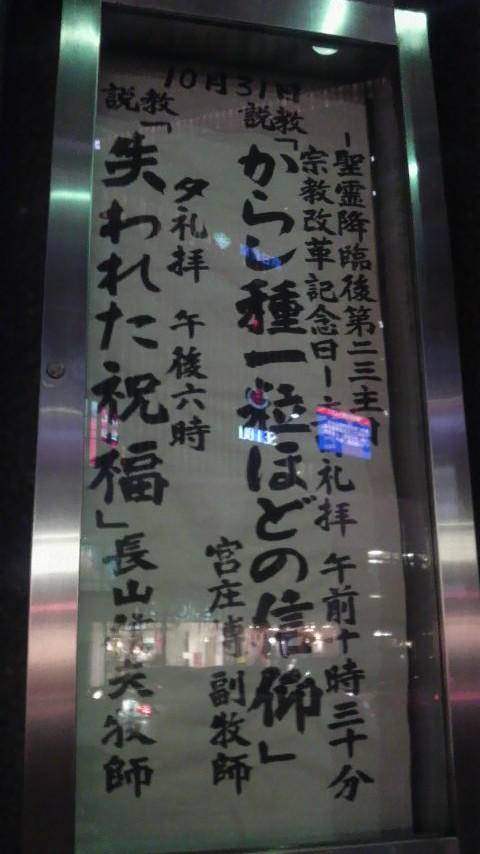 10月31日
－聖霊降臨後第二三主日
宗教改革記念日－
礼拝 午前十時三十分
説教
「からし種一粒ほどの信仰」
宮庄 副牧師
夕礼拝 午後六時
説教
「失われた祝福」
長山 夫牧師